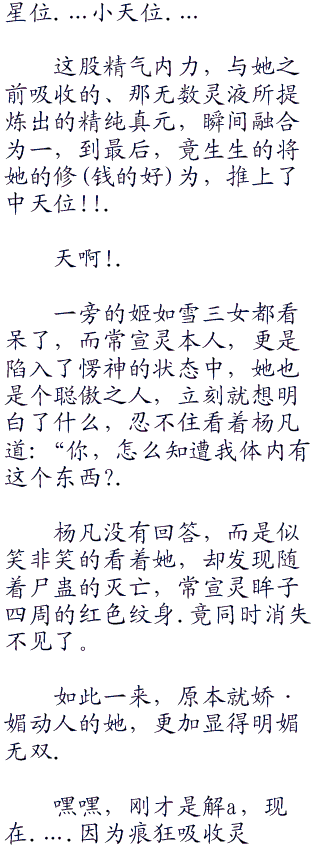 星位....小天位....
这股精气内力，与她之
前吸收的、那无数灵液所提
炼出的精纯真元，瞬间融合
为一，到最后，竟生生的将
她的修(钱的好)为，推上了
中天位!!.
天啊!.
一旁的姬如雪三女都看
呆了，而常宣灵本人，更是
陷入了愣神的状态中，她也
是个聪傲之人，立刻就想明
白了什么，忍不住看着杨凡
道：“你，怎么知遭我体内有
这个东西?.
杨凡没有回答，而是似
笑非笑的看着她，却发现随
着尸蛊的灭亡，常宣灵眸子
四周的红色纹身.竟同时消失
不见了。
如此一来，原本就娇·
媚动人的她，更加显得明媚
无双.
嘿嘿，刚才是解a，现
在.….因为痕狂吸收灵